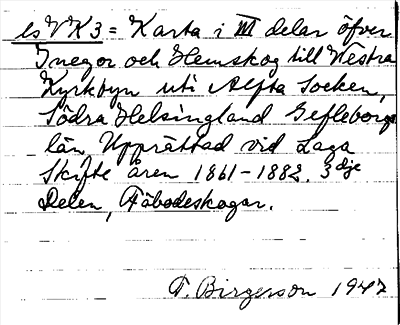 es VK3 = Karta i III delar öfver
Inegor och Hemskog till Westra
Kyrkbyn uti Alfta Socken,
Södra Helsingland Gefleborgs
län Upprättad vid Laga
Skifte åren 1861-1882. 3dje
Delen, Fäbodeskogar.
F. Birgerson 1947